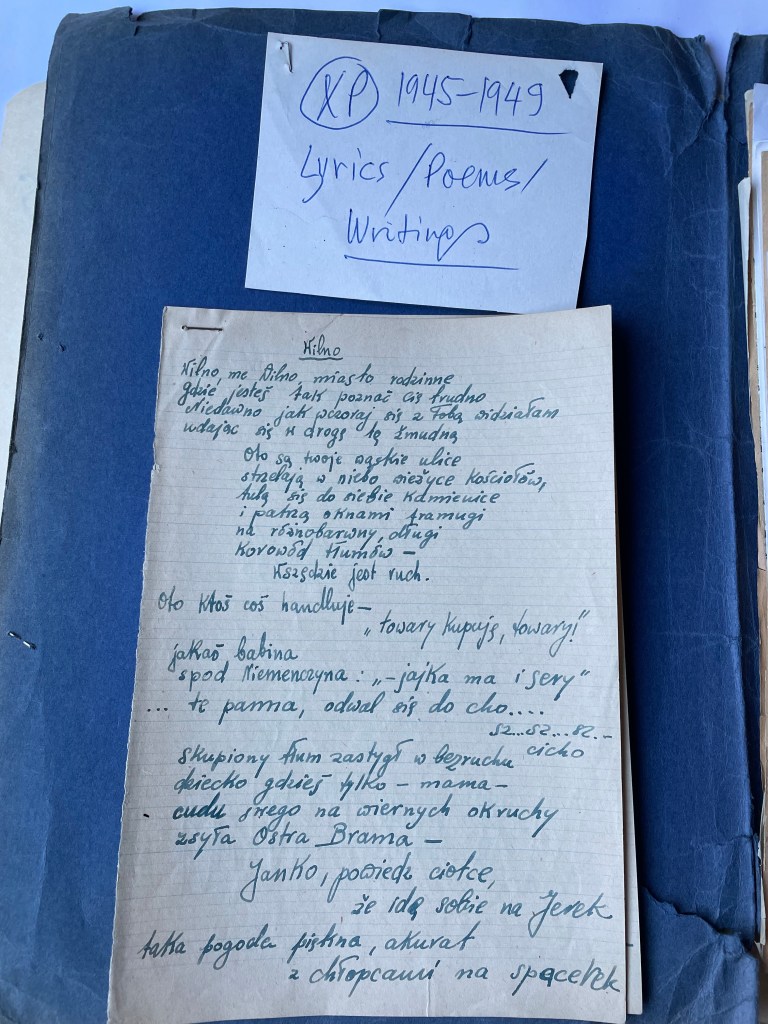 XP 1945-1949
Lyrics/Poems/
Writings
Wilno
Wilno, me Wilno, miasto rodzinne
gdzie jesteś tak poznać cię trudno
Niedawno jak wczoraj się z Tobą widziałam
udając się w drogę tę żmudną
Oto są twoje wąskie ulice
strzelają w niebo wieżyce Kościołów,
tulą się do siebie kamienice
i patrzą oknami framugi
na różnobarwny, długi
Korowód tłumów –
Wszędzie jest ruch.
Oto Ktoś coś handluje –
"towary Kupuję, towary!"
jakaś babina
spod Niemenczyna: "– jajka ma i sery"
... te panna, odwal się do cho....
sz...sz...sz.-
cicho
skupiony tłum zastygł w bezruchu
dziecko gdzieś tylko – mama –
cudu swego na wiernych okruchy
zsyła Ostra Brama –
Janko, powiedz ciotce,
że idę sobie na Jerek
taka pogoda piękna, akurat
z chłopcami na spacerek